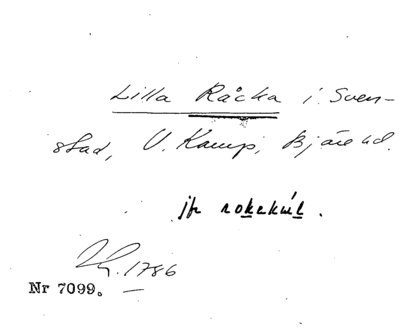 Lilla Råcka i Sven-
stad, V. Karup, Bjäre hd.
jfr rokekull.
1786
Nr 7099.